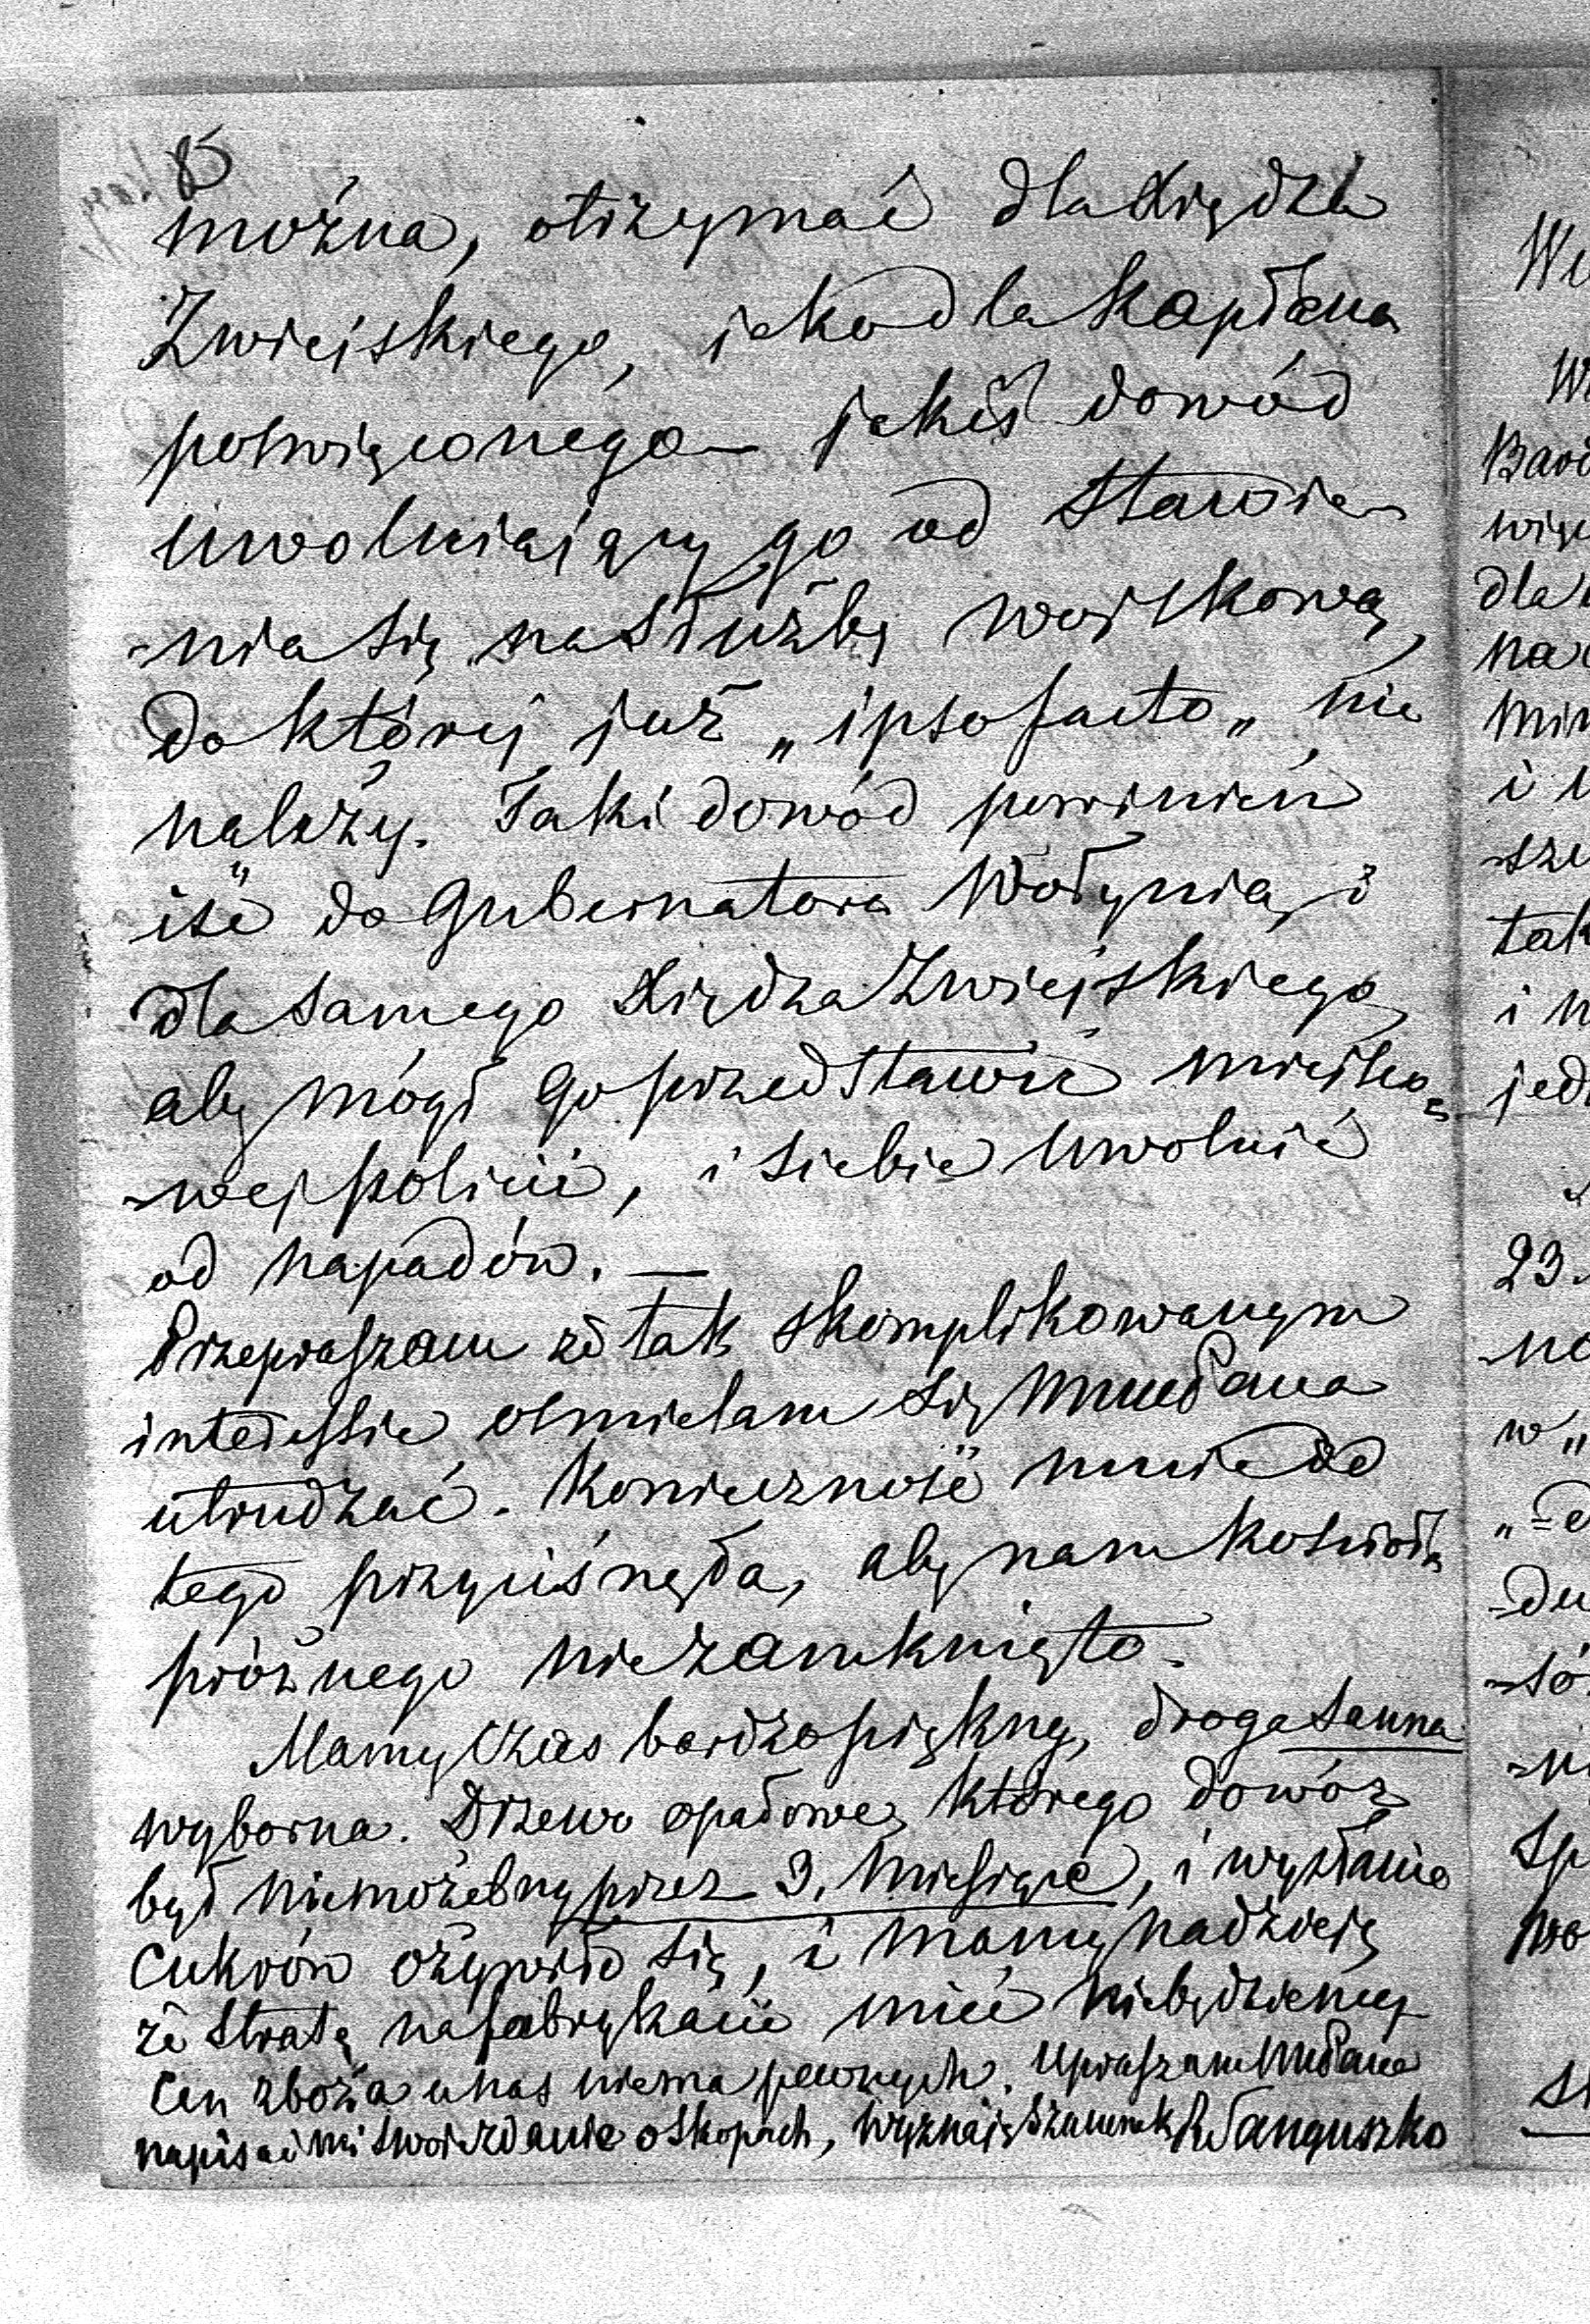 85
można, otrzymać dla Xiędza
Żwiejskiego, jako dla kapłana
poświęconego — jakiś dowód
uwolniający go od stawie-
-nia się na służbę wojskową,
do której już „ipso facto„ nie
należy. Taki dowód powinien
iść do Gubernatora Wołynia, i
dla samego Xiędza Żwiejskiego,
aby mógł go przedstawić miejsco=
-wej policii, i siebie uwolnić
od napadów. —
Przepraszam że tak skomplikowanym
interessie ośmielam się
utrudzać. Konieczność mnie do
tego przycisnęła, aby nam kościoła
próżnego nie zamknięto.
Mamy czas bardzo piękny, droga sanna
wyborna. Drzewo opałowe, którego dowóz
był niemożebny przez 3. miesiące, i wysłanie
cukrów ożywiło się, i mamy nadzieję
że stratę na fabrykacii mieć niebędziemy
Cen zboża u nas niema pewnych. Upraszam
napisać mi swoie zdanie o skopach, wyznaię szacunek R Sanguszko
23.
tak
jed